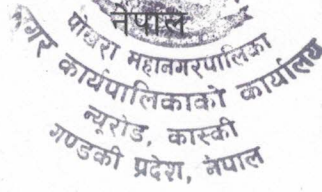 नेपाल
पोखरा महानगरपालिका
नगर कार्यपालिकाको कार्यालय
न्यूरोड, कास्की
गण्डकी प्रदेश, नेपाल